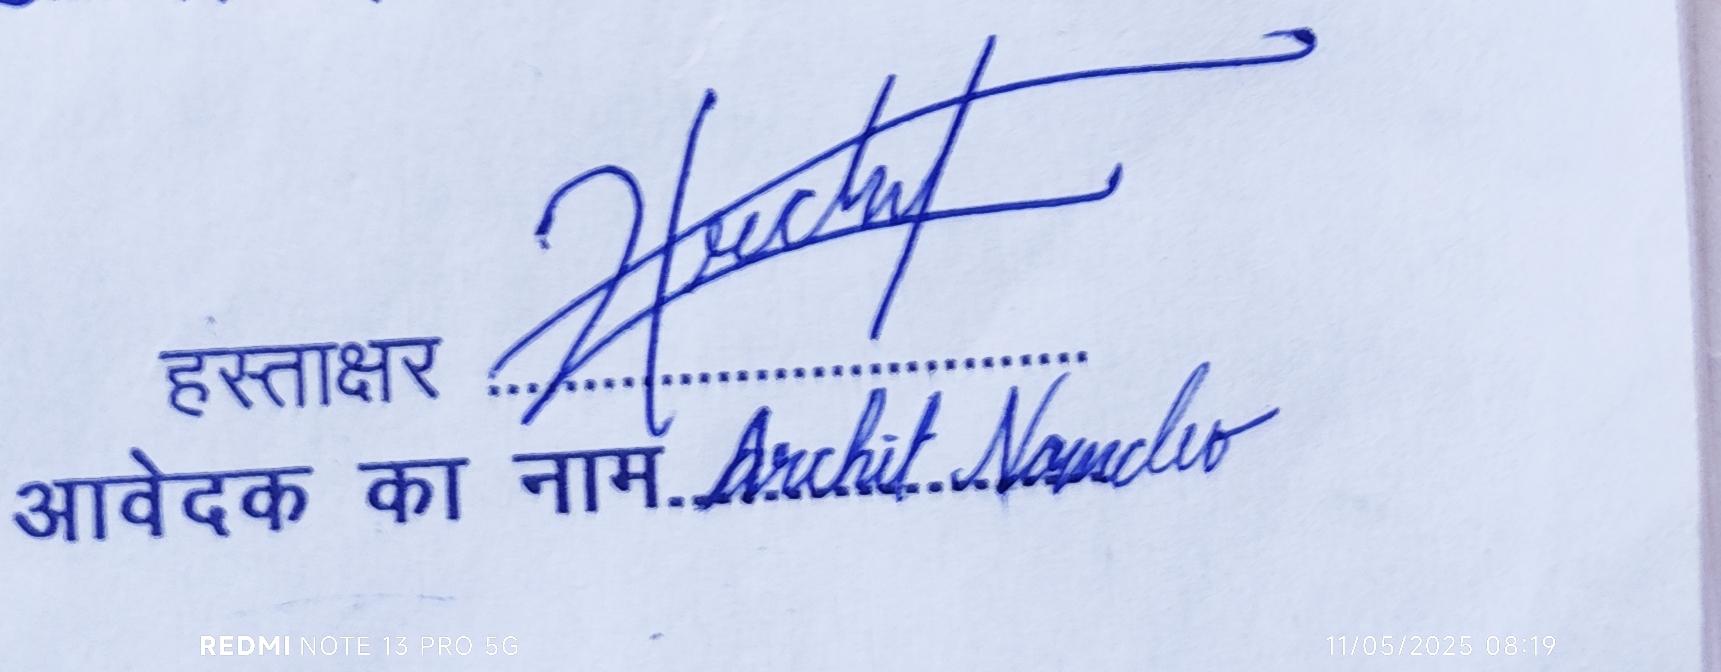 हस्ताक्षर .................................... Archit
आवेदक का नाम.. Archit Namdeo
REDMI NOTE 13 PRO 5G
11/05/2025 08:19